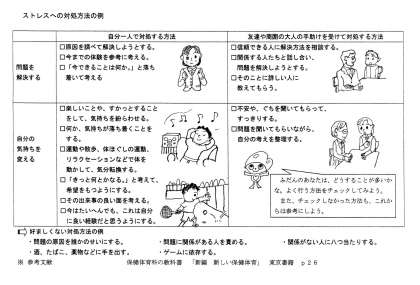 ストレスへの対処方法の例
自分一人で対処する方法
友達や周囲の大人の手助けを受けて対処する方法
問題を
解決する
□原因を調べて解決しようとする。
□今までの体験を参考に考える。
□「今できることは何か。」と落ち
着いて考える
□信頼できる人に解決方法を相談する。
□関係する人たちと話し合い、
問題を解決しようとする。
□そのことに詳しい人に
教えてもらう。
自分の
気持ちを
変える
□楽しいことや、すかっとすること
をして、気持ちを紛らわせる。
□何か、気持ちが落ち着くことを
する。
□運動や散歩、体ほぐしの運動、
リラクセーションなどで体を
動かして、気分転換する。
□「きっと何とかなる。」と考えて、
希望をもつようにする。
□その出来事の良い面を考える。
□今はたいへんでも、これは自分
に良い経験だと思うようにする。
□不安や、ぐちを聞いてもらって、
すっきりする。
□問題を聞いてもらいながら、
自分の考えを整理する。
ふだんのあなたは、どうすることが多いか
な。よく行う方法をチェックしてみよう。
また、チェックしなかった方法も、これか
らは参考にしよう。
好ましくない対処方法の例
・問題の原因を誰かのせいにする。
・問題に関係がある人を責める。
・関係がない人に八つ当たりする。
・酒、たばこ、薬物などに手を出す。
・ゲームに依存する。
※ 参考文献
保健体育科の教科書 「新編 新しい保健体育」 東京書籍 p26